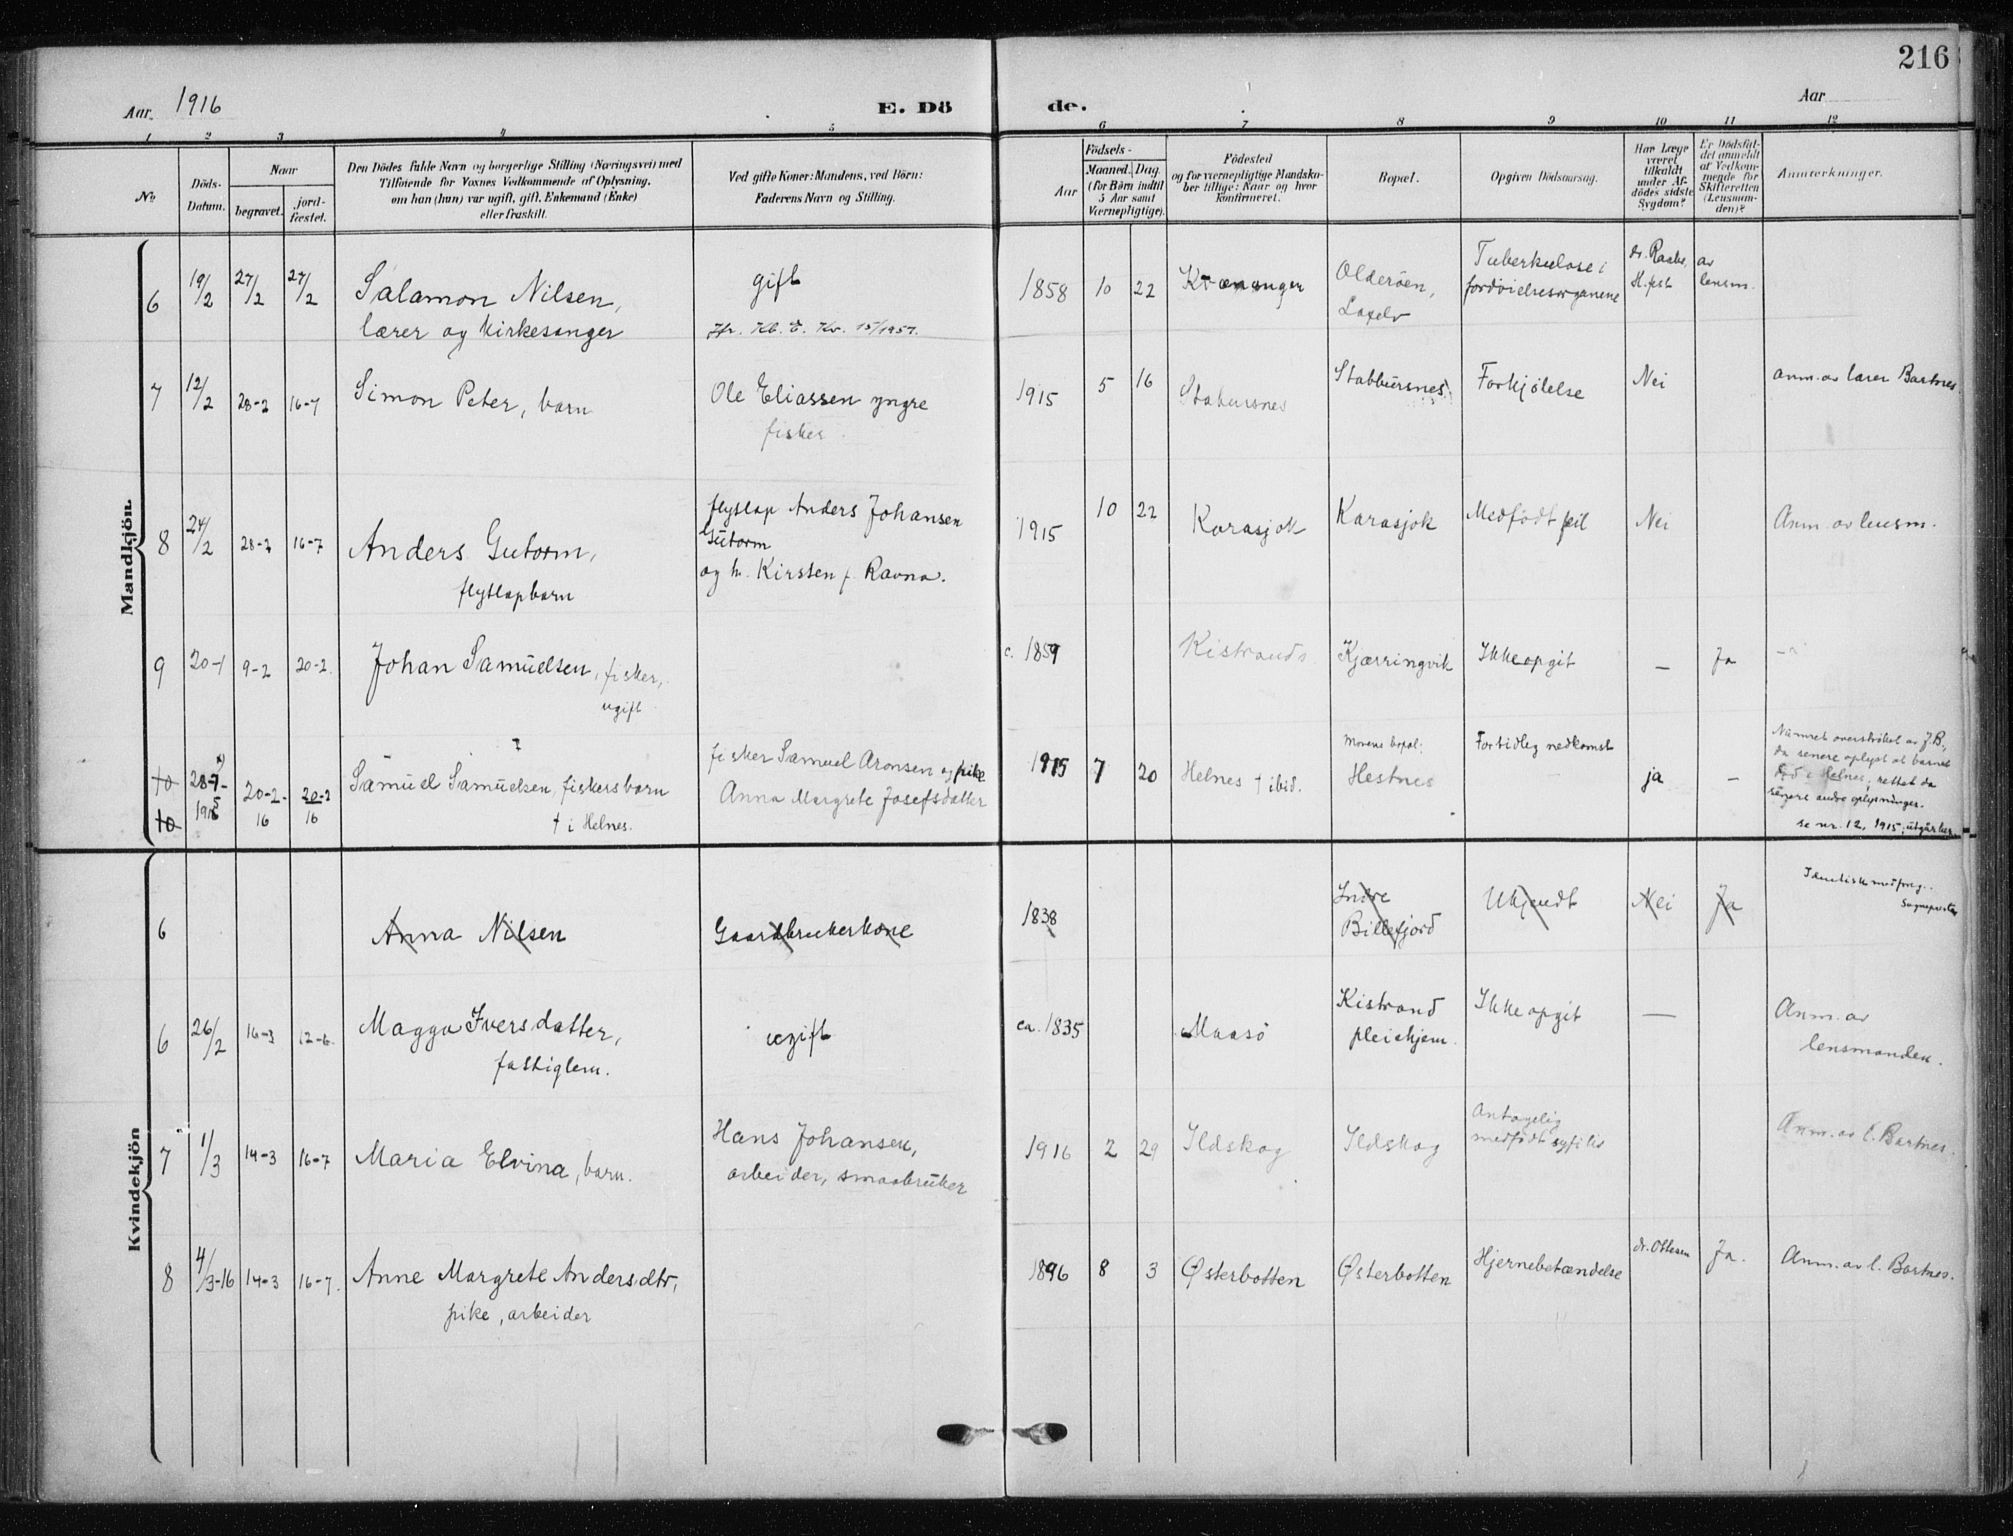 216
Aar 1916 E. Dö de. Aar
1 2 3 4 5 6 7 8 9 10 11 12
No
Döds-
Datum.
Naar
begravet.
jord-
fæstet.
Den Dödes fulde Navn og borgerlige Stilling (Næringsvei) med
Tilföiende for Voxnes Vedkommende af Oplysning,
om han (hun) var ugift, gift, Enkemand (Enke)
eller fraskilt.
Ved gifte Koner: Mandens, ved Börn:
Faderens Navn og Stilling.
Födsels-
Aar
Maaned. Dag.
(for Börn indtil
5 Aar samt
Værnepligtige).
Födested
og for værnepligtige Mandska-
ber tillige: Naar og hvor
konfirmeret.
Bopæl.
Opgiven Dödsaarsag.
Har Læge
været
tilkaldt
under Af-
dödes sidste
Sygdom?
Er Dödsfal-
det anmeldt
af Vedkom-
mende for
Skifteretten
(Lensman-
den)?
Anmærkninger.
Mandkjön.
6 19/2 27/2 27/2 Salamon Nilsen, gift 1858 10 22 Kvænangen Olderöen, Tuberkulose i dr. Raabe, av
lærer og kirkesanger Jfr. Kb. E. Kv. 15/1957. Laxelv fordöielsesorganene H.fest lensm.
7 12/2 28-2 16-7 Simon Peter, barn Ole Eliassen yngre 1915 5 16 Stabursnes Stabbursnes Forkjölelse Nei anm. av lærer Bartnes.
fisker
8 24/2 28-2 16-7 Anders Gutorm, flytlap Anders Johansen 1915 10 22 Karasjok Karasjok Medfödt feil Nei Anm. av lensm.
Gutorm
flytlapbarn og h. Kirsten f. Ravna.
9 20-1 9-2 20-2 Johan Samuelsen, fisker, c. 1859 Kistrand Kjærringvik Ikke opgit — Ja
ugift
10 28-7- 1915 20-2-16 20-2 16 Samuel Samuelsen, fiskersbarn fisker Samuel Aronsen og pike 1915 7 20 Helnes † ibid. Morens bopæl: Fortidleg nedkomst ja —
10 † i Helnes. Anna Margrete Josefsdatter Hestnes
Navnet overströket av J.B.,
da senere oplyst at barnet
död i Helnes; rettet da
senere andre oplysninger.
se nr. 12, 1915; utgår her.
Kvindekjön
6 Anna Nilsen Gaardbrukerkone 1838 Indre Ukjendt Nei Ja Identisk med foreg.
Billefjord Sogneprest
6 26/2 16-3 12-6 Magga Iversdatter, ugift ca. 1835 Maasö Kistrand Ikke opgit — Anm. av
fattiglem. pleiehjem. lensmanden.
7 1/3 14-3 16-7 Maria Elvina, barn. Hans Johansen, 1916 2 29 Ildskog Ildskog Antagelig Anm. av l. Bartnes.
arbeider, smaabruker medfödt syfilis
8 4/3-16 14-3 16-7. Anne Margrete Andersdtr, 1896 8 3 Østerbotten Østerbotten Hjernebetændelse dr. Ottesen Ja. Anm. av l. Bartnes.
pike, arbeider